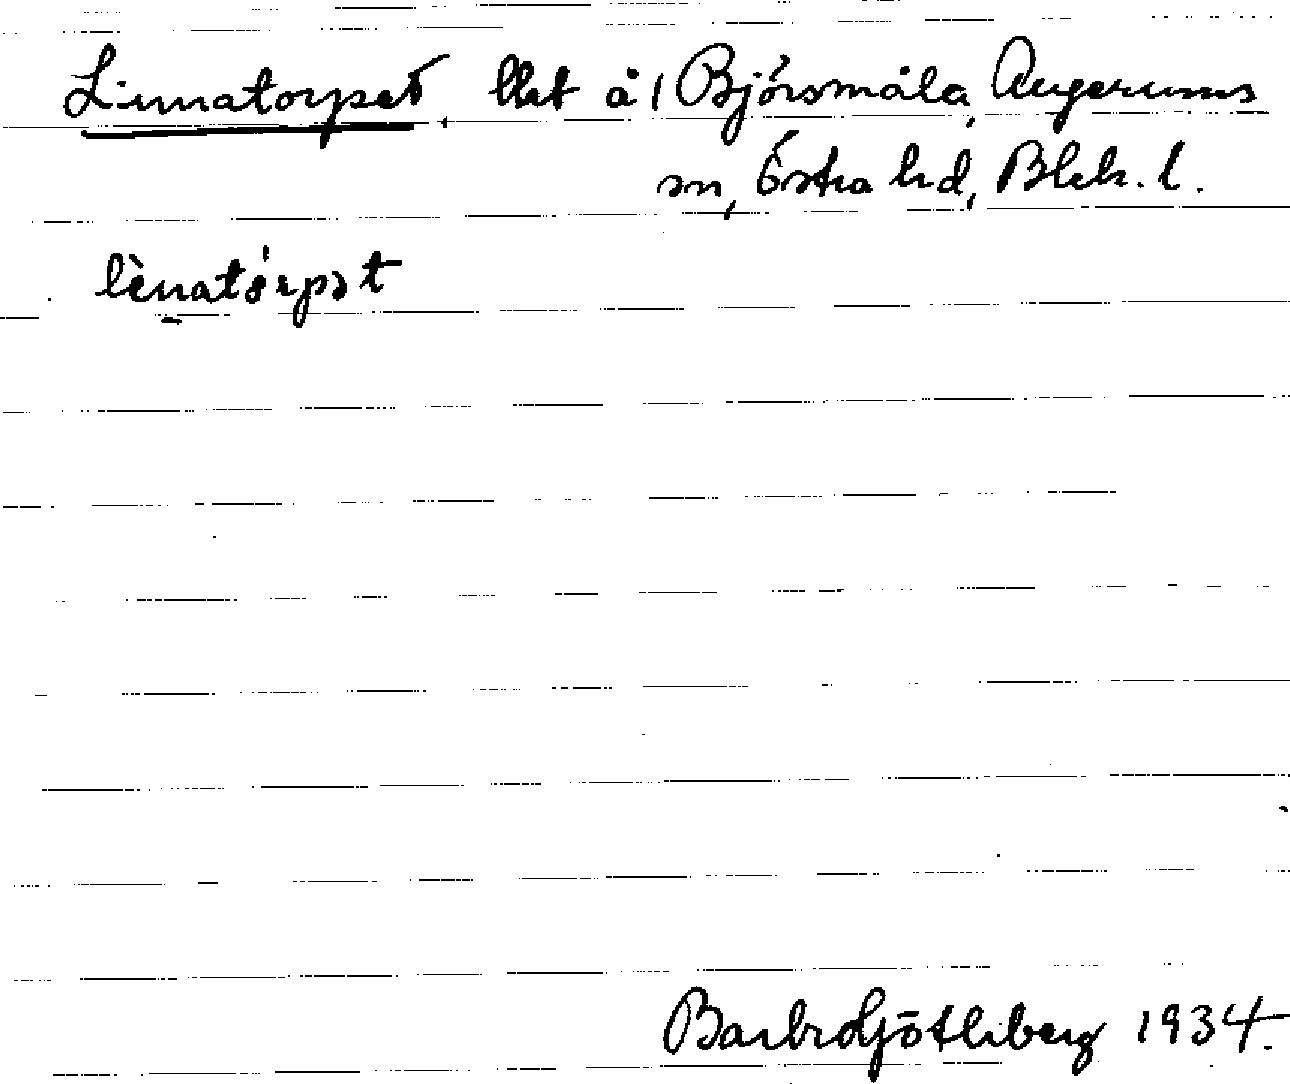 Linnatorpet, lht å 1 Björsmåla, Augerums
sn, Östra hd, Blek. l.
lènatórpət
Barbro Götliberg 1934.